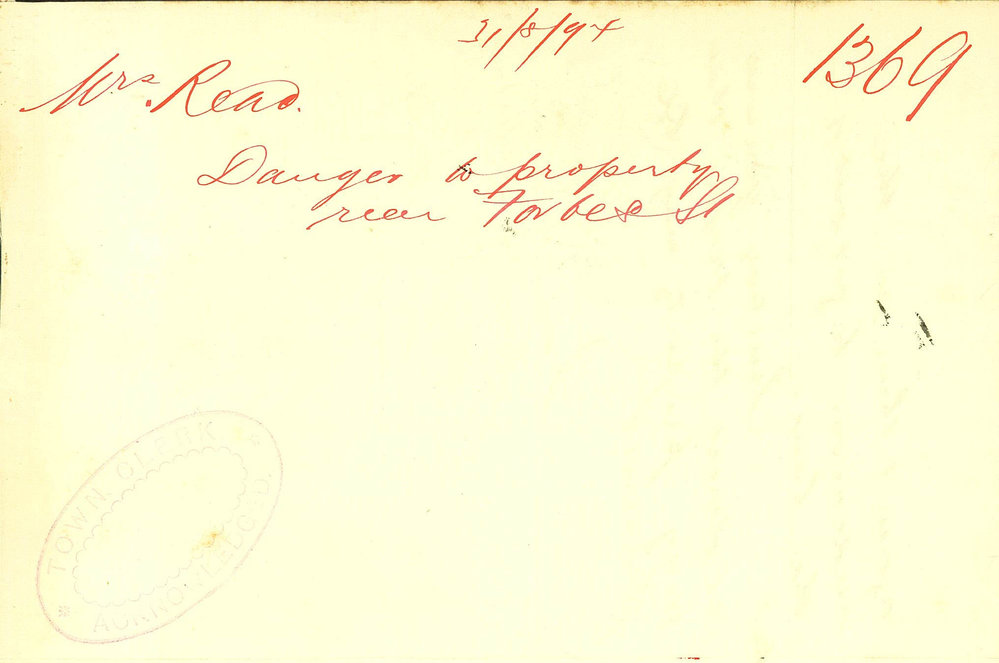 31/8/94
1369
Mrs. Read.
Danger to property
rear Forbes St
TOWN CLERK
ACKNOWLEDGED.